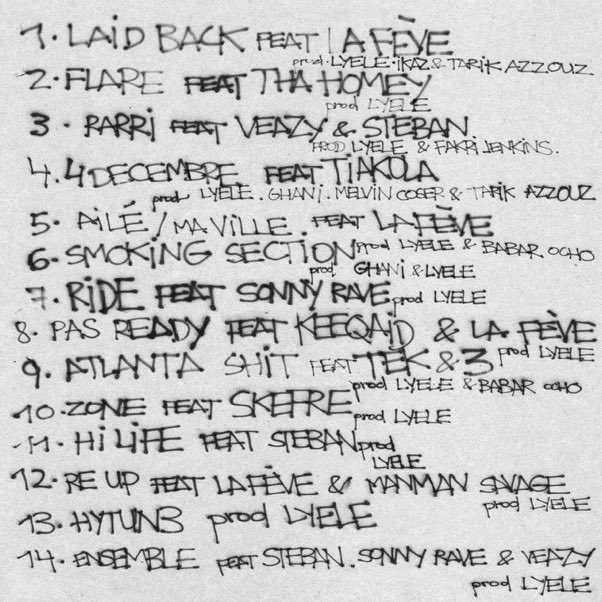 1. LAID BACK FEAT LA FÈVE
prod. LYELE. IKAZ & TARIK AZZOUZ
2. FLARE FEAT THA HOMEY
prod LYELE
3. RARRI FEAT VEAZY & STEBAN.
PROD. LYELE & FAKRI JENKINS.
4. 4 DECEMBRE FEAT TIAKOLA
prod LYELE. GHANI. MELVIN COSER & TARIK AZZOUZ
5. AILÉ / MA VILLE. FEAT LA FÈVE
prod LYELE & BABAR OCHO
6. SMOKING SECTION
prod. GHANI & LYELE
7. RIDE FEAT SONNY RAVE prod LYELE
8. PAS READY FEAT KEEQAID & LA FÈVE
prod LYELE
9. ATLANTA SHIT FEAT TEK & 3
prod LYELE & BABAR OCHO
10. ZONE FEAT SKEFRE prod LYELE
11. HI LIFE FEAT STEBAN prod
LYELE
12. RE UP FEAT LA FÈVE & MANMAN SAVAGE
prod LYELE
13. HYTUN3 prod LYELE
14. ENSEMBLE FEAT STEBAN. SONNY RAVE & VEAZY
prod LYELE